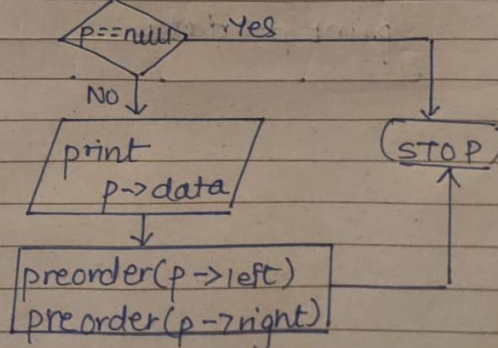 p==null
Yes
NO
print
p->data
STOP
preorder(p->left)
preorder(p->right)